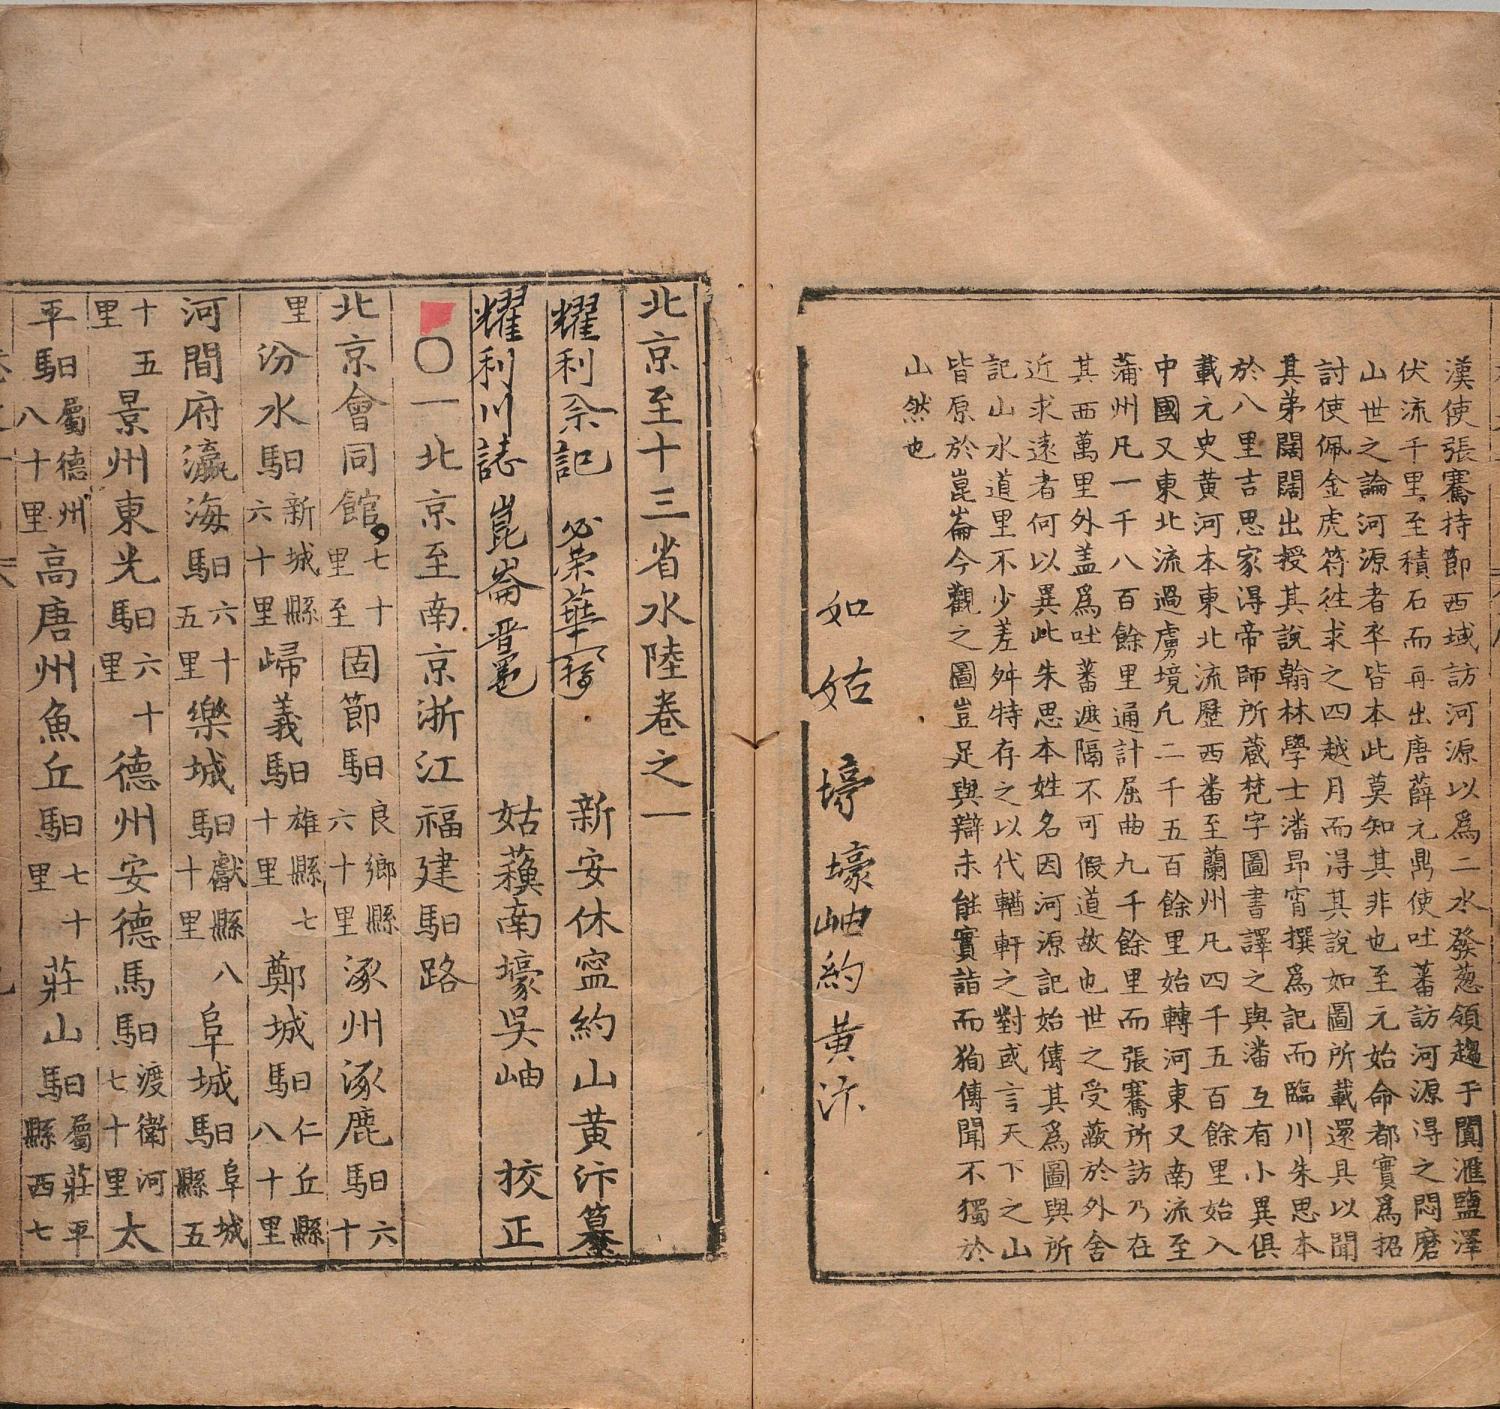 漢使張騫持節西域訪河源以爲二水發葱領趨于闐滙鹽澤
伏流千里至積石而再出唐薛元鼎使吐蕃訪河源得之悶磨
山世之論河源者卒皆本此莫知其非也至元始命都實爲招
討使佩金虎符往求之四越月而得其說如圖所載還具以聞
其弟闊闊出授其說翰林學士潘昻霄撰爲記而臨川朱思本
於八里吉思家得帝師所蔵梵字圖書譯之與潘互有小異俱
載元史黄河本東北流歷西番至蘭州凢四千五百餘里始入
中國又東北流過虜境凢二千五百餘里始轉河東又南流至
蒲州凢一千八百餘里通計屈曲九千餘里而張騫所訪乃在
其西萬里外盖爲吐蕃遮隔不可假道故也世之受蔽於外舍
近求遠者何以異此朱思本姓名因河源記始傳其爲圖與所
記山水道里不少差舛特存之以代輶軒之對或言天下之山
皆原於崑崙今觀之圖豈足與辯未能實詣而狥傳聞不獨於
山然也
如姑 壕壕岫約黄汴
北京至十三省水陸卷之一
耀利 記 必榮華 新安休寕約山黄汴纂
耀利川誌崑崙 姑蘓南壕吳岫 挍正
〇一北京至南京浙江福建馹路
北京會同館七十里至固節馹良鄉縣六十里涿州涿鹿馹六十
里汾水馹新城縣六十里歸義馹雄縣七十里鄚城馹仁丘縣八十里
河間府瀛海馹六十五里樂城馹獻縣八十里阜城馹阜城縣五
十五里景州東光馹六十里德州安德馬馹渡衛河七十里太
平馹屬德州八十里高唐州魚丘馹七十里莊山馹屬莊平縣西七